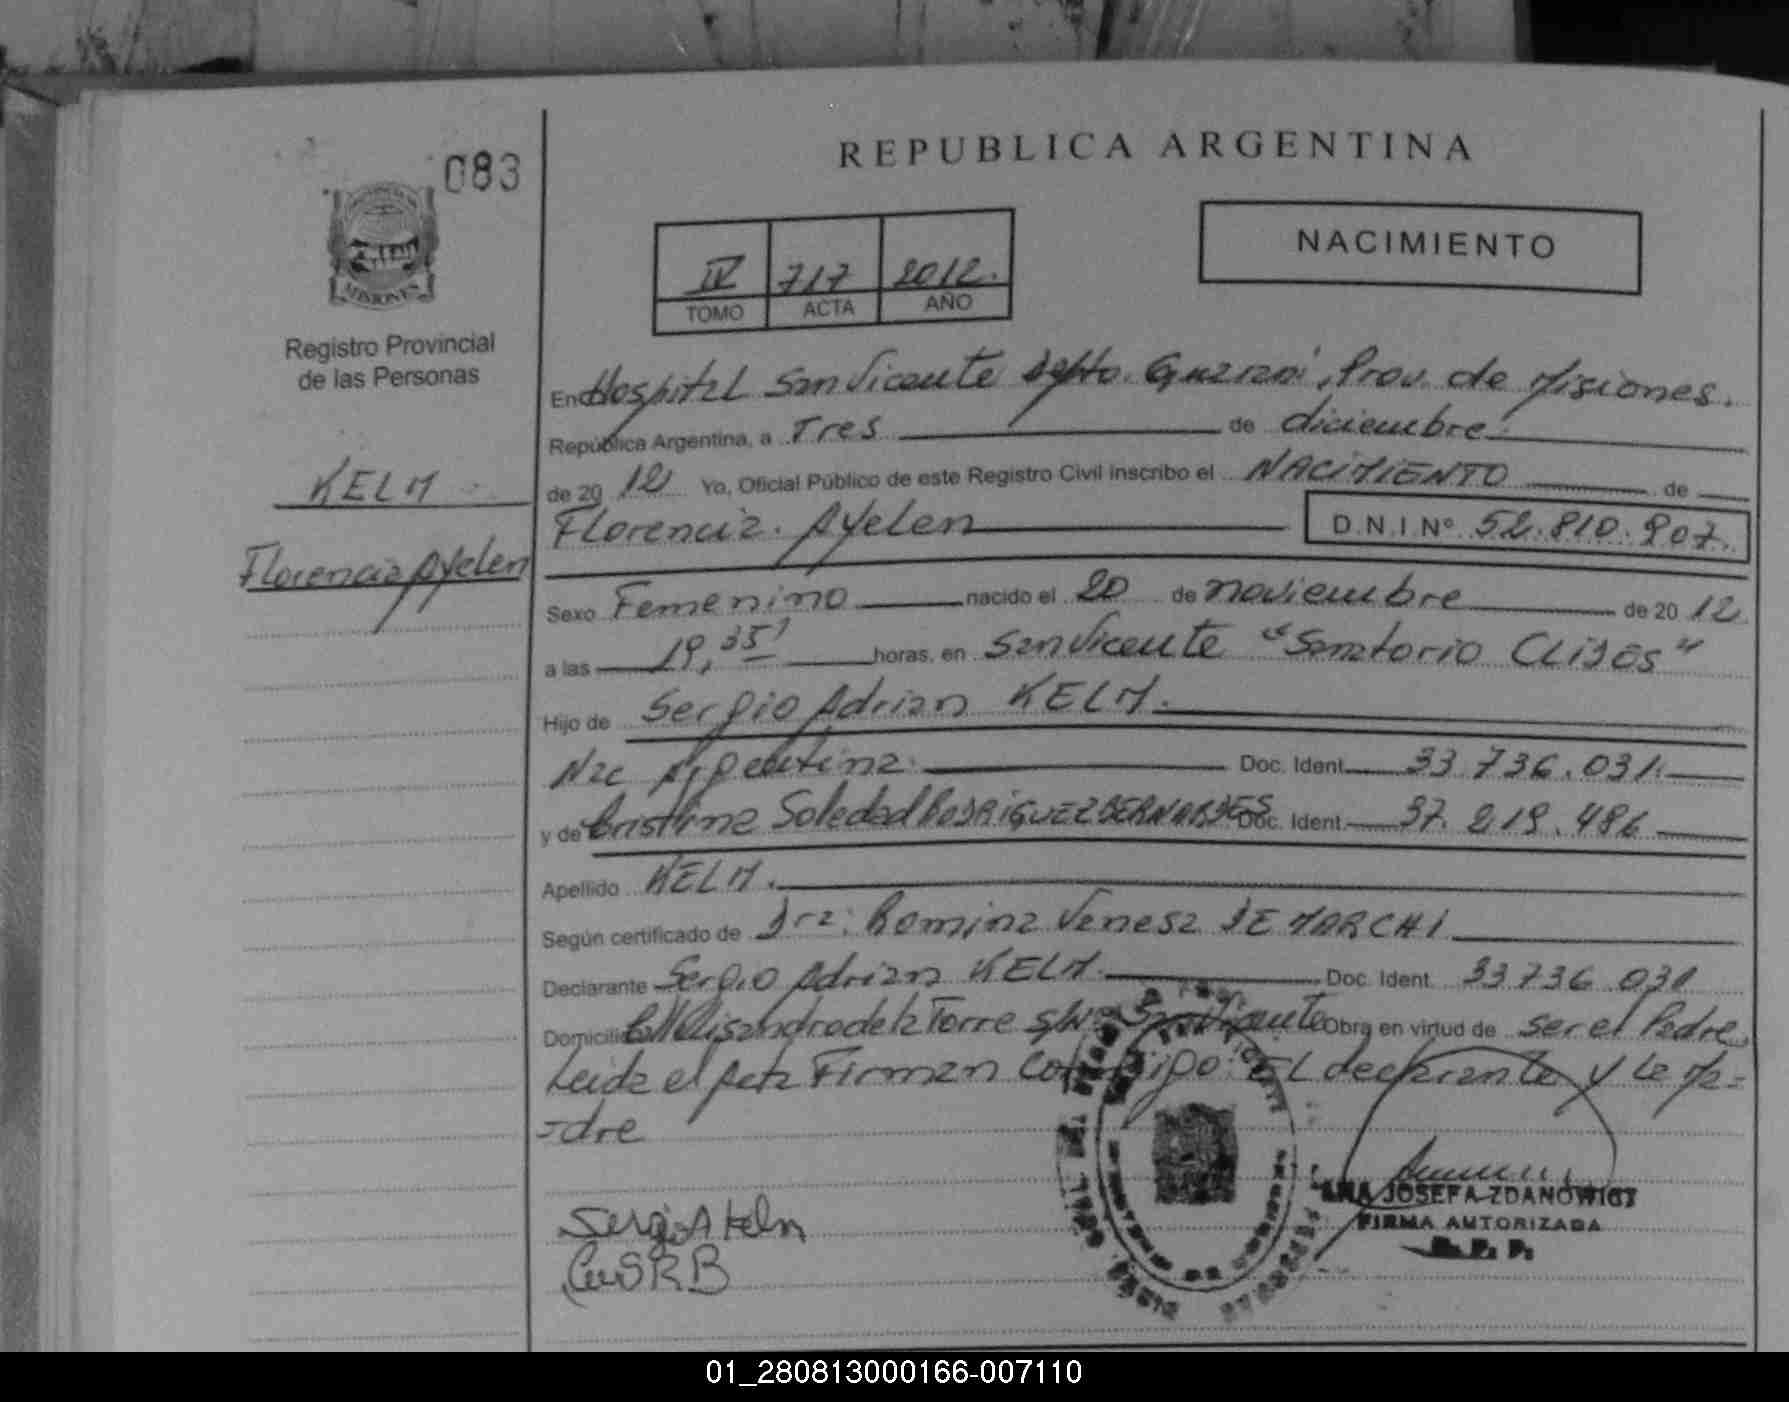 083
REPUBLICA ARGENTINA
NACIMIENTO
IV 717 2012.
TOMO ACTA AÑO
MISIONES
Registro Provincial
de las Personas
En Hospital San Vicente Depto. Guarani, Prov. de Misiones.
República Argentina, a Tres de diciembre
KELM
de 20 12 Yo, Oficial Público de este Registro Civil inscribo el NACIMIENTO de
Florencia Ayelen
Florencia. Ayelen D.N.I Nº 52.810.907.
Sexo Femenino nacido el 20 de noviembre de 20 12
a las 19,35' horas, en San Vicente "Sanatorio CLIDOS"
Hijo de Sergio Adrian KELM.
Nac Argentina. Doc. Ident. 33 736.031.
y de Cristina Soledad RODRIGUEZ BERNARDES Doc. Ident. 37.219.486
Apellido KELM.
Según certificado de Dra: Romina Venesa DE MARCHI
Declarante Sergio Adrian KELM. Doc. Ident. 33736 031
Domicilio Lisandro de la Torre s/Nº San Vicente Obra en virtud de ser el Padre
Leida el acta Firman Conmigo: El declarante y La Ma=
=dre
Sergio A Kelm
SRB
ANA JOSEFA ZDANOWICZ
FIRMA AUTORIZADA
R. P. P.
01_280813000166-007110